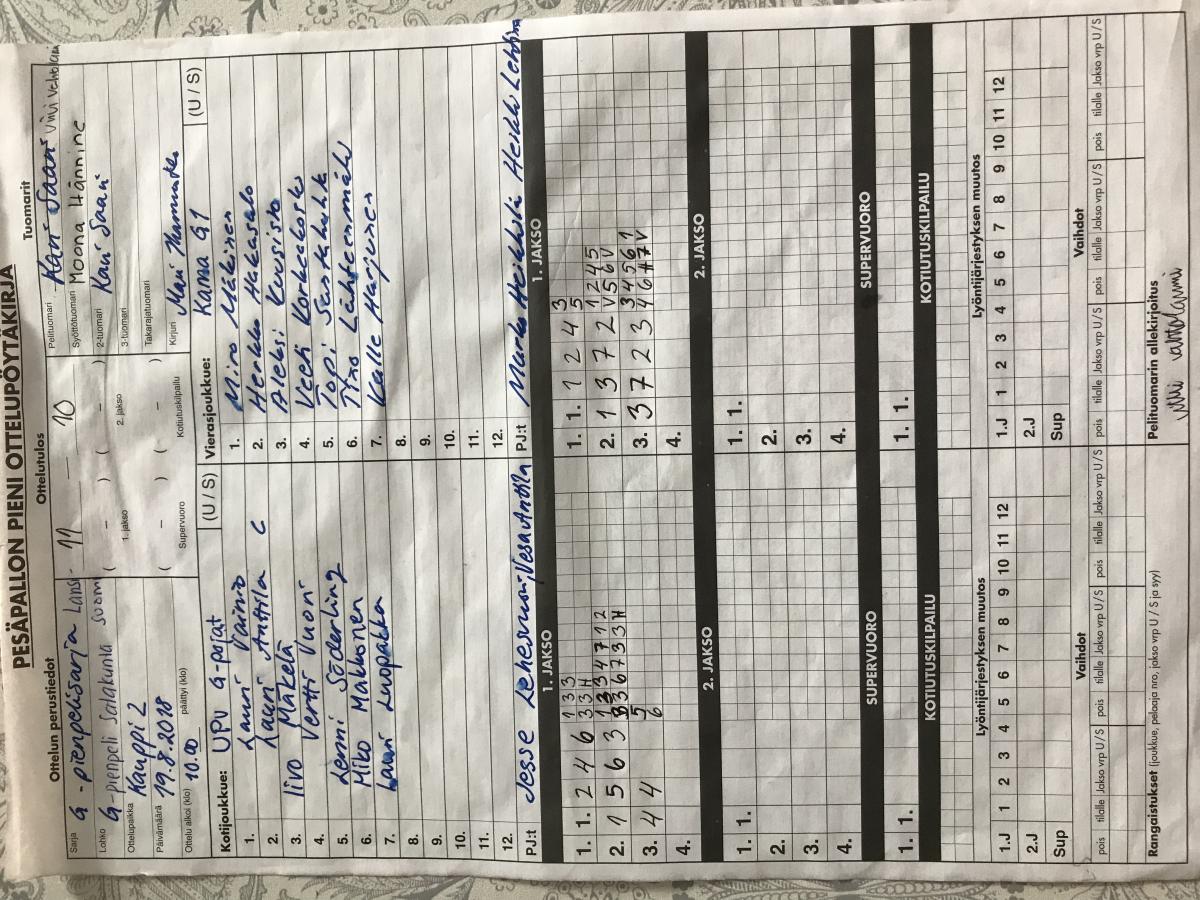 PESÄPALLON PIENI OTTELUPÖYTÄKIRJA
Ottelun perustiedot
Sarja G-pienpelisarja Länsi-
Lohko G-pienpeli Satakunta Suomi
Ottelupaikka Kauppi 2
Päivämäärä 19.8.2018
Ottelu alkoi (klo) 10.00 päättyi (klo)
Ottelutulos
11 — 10
( - ) ( - )
1. jakso 2. jakso
( - ) ( - )
Supervuoro Kotiutuskilpailu
Tuomarit
Pelituomari Kari Saari
Syöttötuomari Moona Hännine
2-tuomari Kari Saari
3-tuomari
Takarajatuomari
Kirjuri Mari
Kotijoukkue: UPV G-pojat (U / S)
1. Lauri Vainio
2. Lauri Anttila C
3. Iivo Mäkelä
4. Vertti Vuori
5. Lenni Söderling
6. Miko Makkonen
7. Lauri Luopakka
8.
9.
10.
11.
12.
PJ:t Jesse Vesa Anttila
Vierasjoukkue: Kama G1 (U / S)
1. Miro Mäkinen
2. Herkko Hakasalo
3. Aleksi Kuusisto
4. Veeti Korkeakoski
5. Topi
6. Lähteenmäki
7. Kalle Harjunen
8.
9.
10.
11.
12.
PJ:t Marko Heikki
1. JAKSO
1. 1. 2 4 6
2. 1 5 6 3
3. 4 4
4.
1. JAKSO
1. 1. 1 2 4 5
2. 1 3 7 2
3. 3 7 2 3
4.
2. JAKSO
1. 1.
2.
3.
4.
2. JAKSO
1. 1.
2.
3.
4.
SUPERVUORO
1. 1.
SUPERVUORO
1. 1.
KOTIUTUSKILPAILU
KOTIUTUSKILPAILU
Lyöntijärjestyksen muutos
1.J 1 2 3 4 5 6 7 8 9 10 11 12
2.J
Sup
Lyöntijärjestyksen muutos
1.J 1 2 3 4 5 6 7 8 9 10 11 12
2.J
Sup
Vaihdot
pois tilalle Jakso vrp U / S pois tilalle Jakso vrp U / S pois tilalle Jakso vrp U / S
Vaihdot
pois tilalle Jakso vrp U / S pois tilalle Jakso vrp U / S pois tilalle Jakso vrp U / S
Rangaistukset (joukkue, pelaaja nro, jakso vrp U / S ja syy)
Pelituomarin allekirjoitus